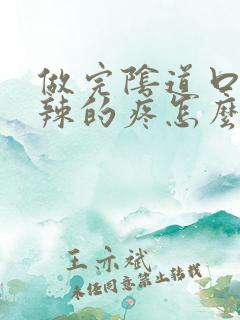 做完陰道口
辣的疼怎麼
王亦斌
未经同意禁止转载